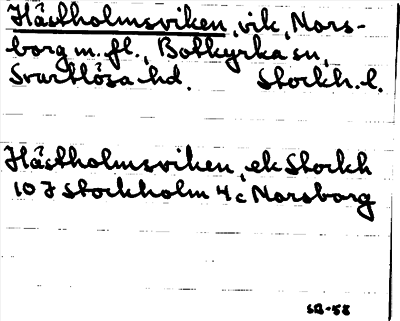 Hästholmsviken, vik, Nors-
borg m. fl., Botkyrka sn,
Svartlösa hd. Stockh. l.
Hästholmsviken, ek Stockh
10 I Stockholm 4c Norsborg
SB-58